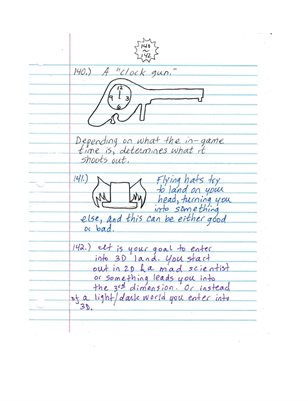 140
~
142
140.) A "clock gun."
12
9 3
6
Depending on what the in-game
time is, determines what it
shoots out.
141.) Flying hats try
to land on your
head, turning you
into something
else, and this can be either good
or bad.
142.) It is your goal to enter
into 3D land. You start
out in 2D & a mad scientist
or something leads you into
the 3rd dimension. Or instead
of a light/dark world you enter into
3D.